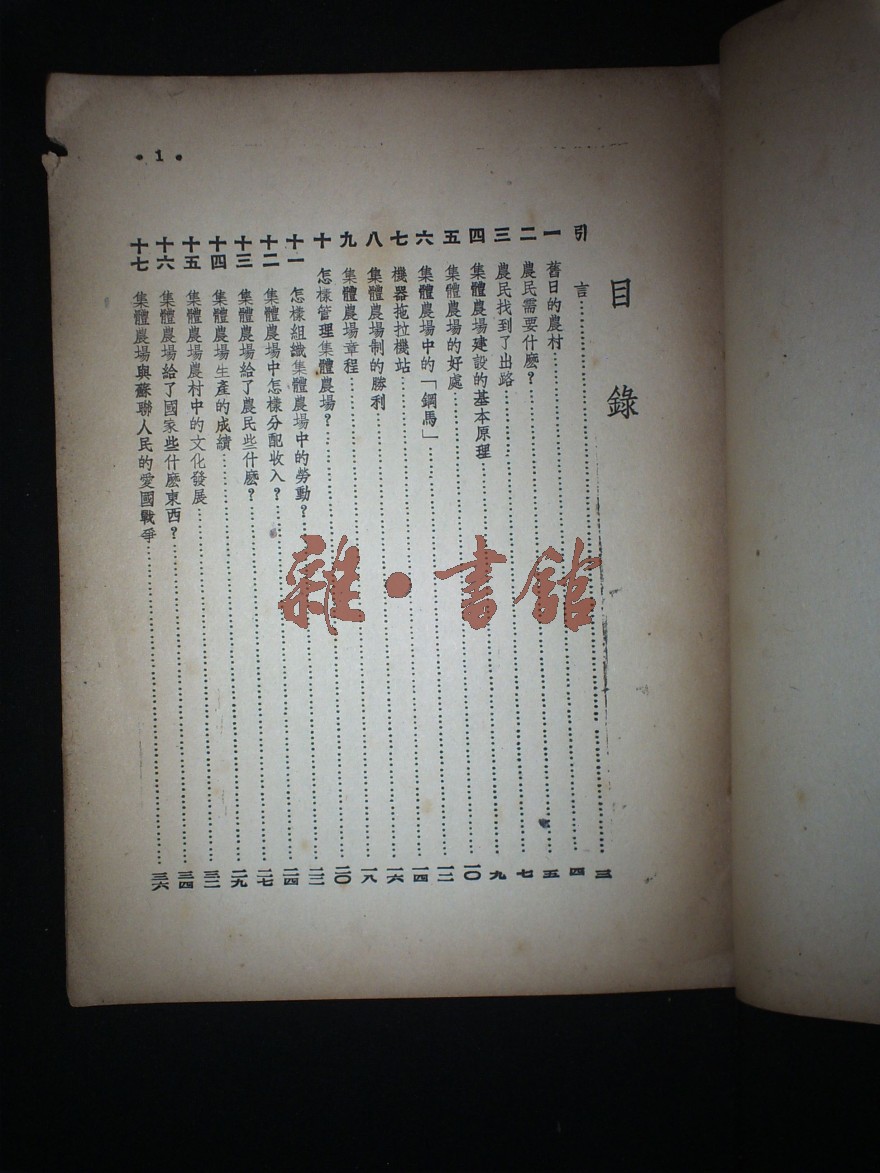 • 1 •
目錄
引言……三
一 舊日的農村……四
二 農民需要什麽？……五
三 農民找到了出路……七
四 集體農場建設的基本原理……九
五 集體農場的好處……一〇
六 集體農場中的「鋼馬」……一二
七 機器拖拉機站……一四
八 集體農場制的勝利……一六
九 集體農場章程……一八
十 怎樣管理集體農場？……二〇
十一 怎樣組織集體農場中的勞動？……二二
十二 集體農場中怎樣分配收入？……二四
十三 集體農場給了農民些什麽？……二七
十四 集體農場生產的成績……二九
十五 集體農場農村中的文化發展……三二
十六 集體農場給了國家些什麽東西？……三四
十七 集體農場與蘇聯人民的愛國戰爭……三六
雜•書館